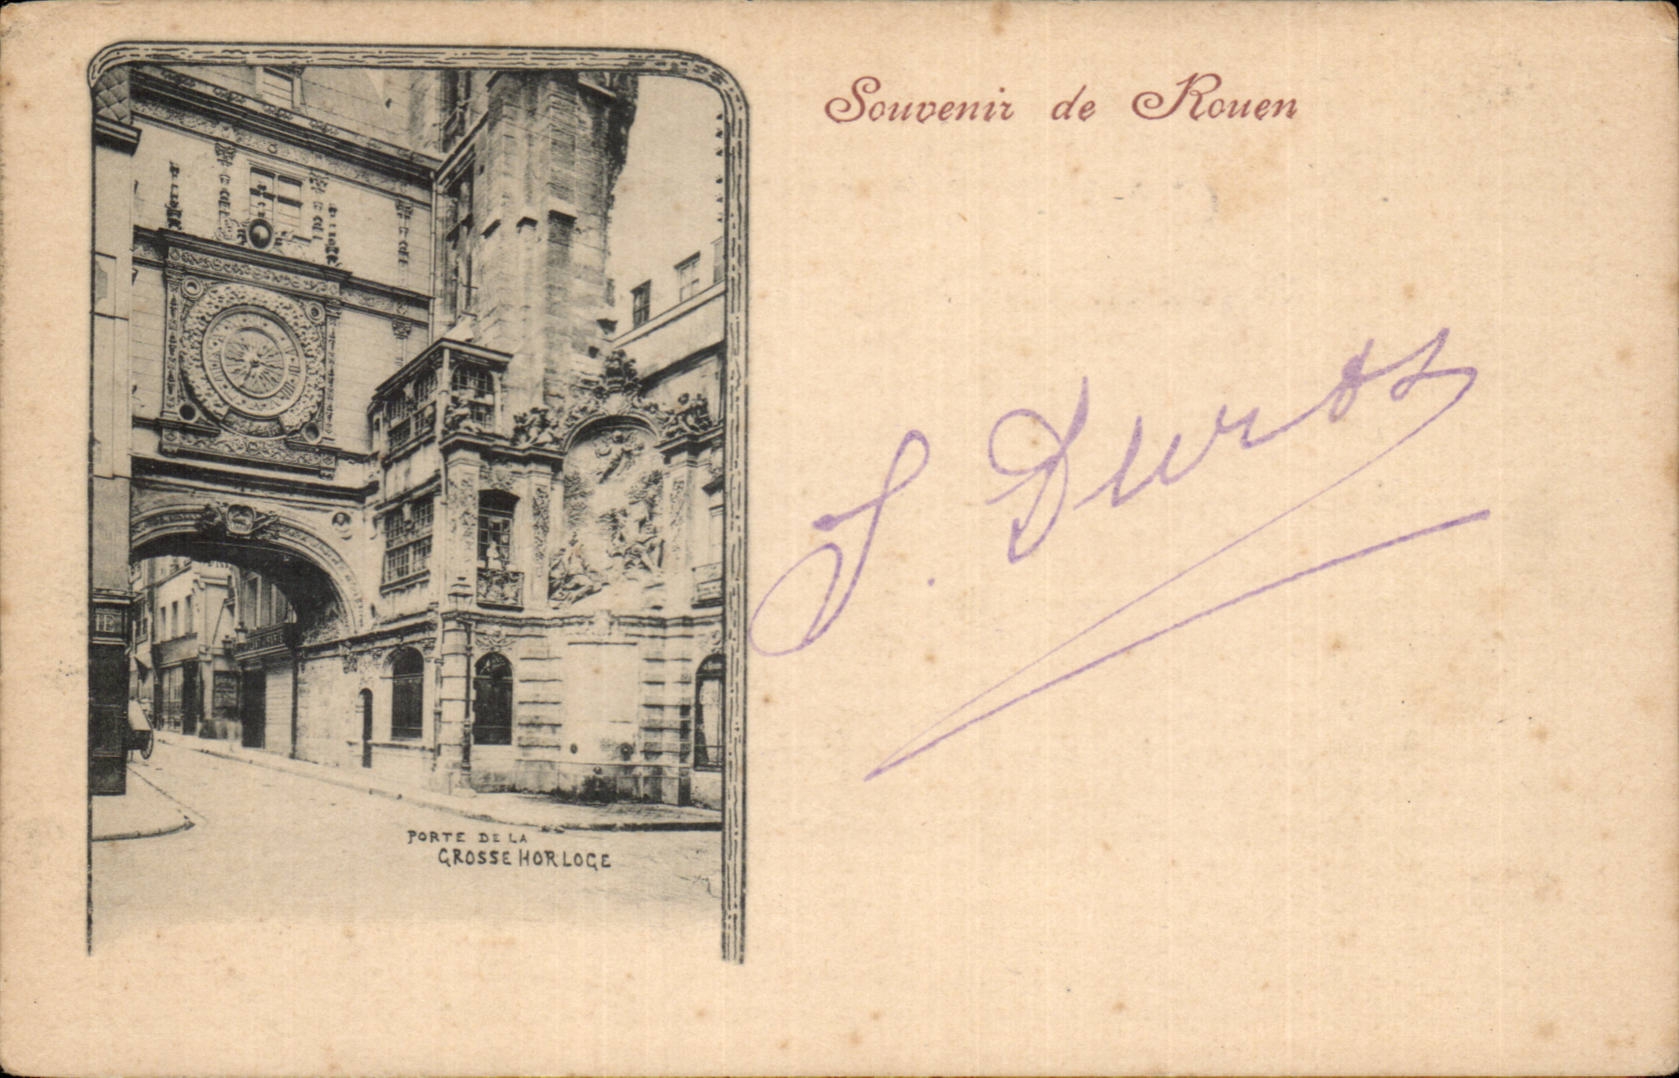 Souvenir de Rouen
J. Duros
PORTE DE LA
GROSSE HORLOGE